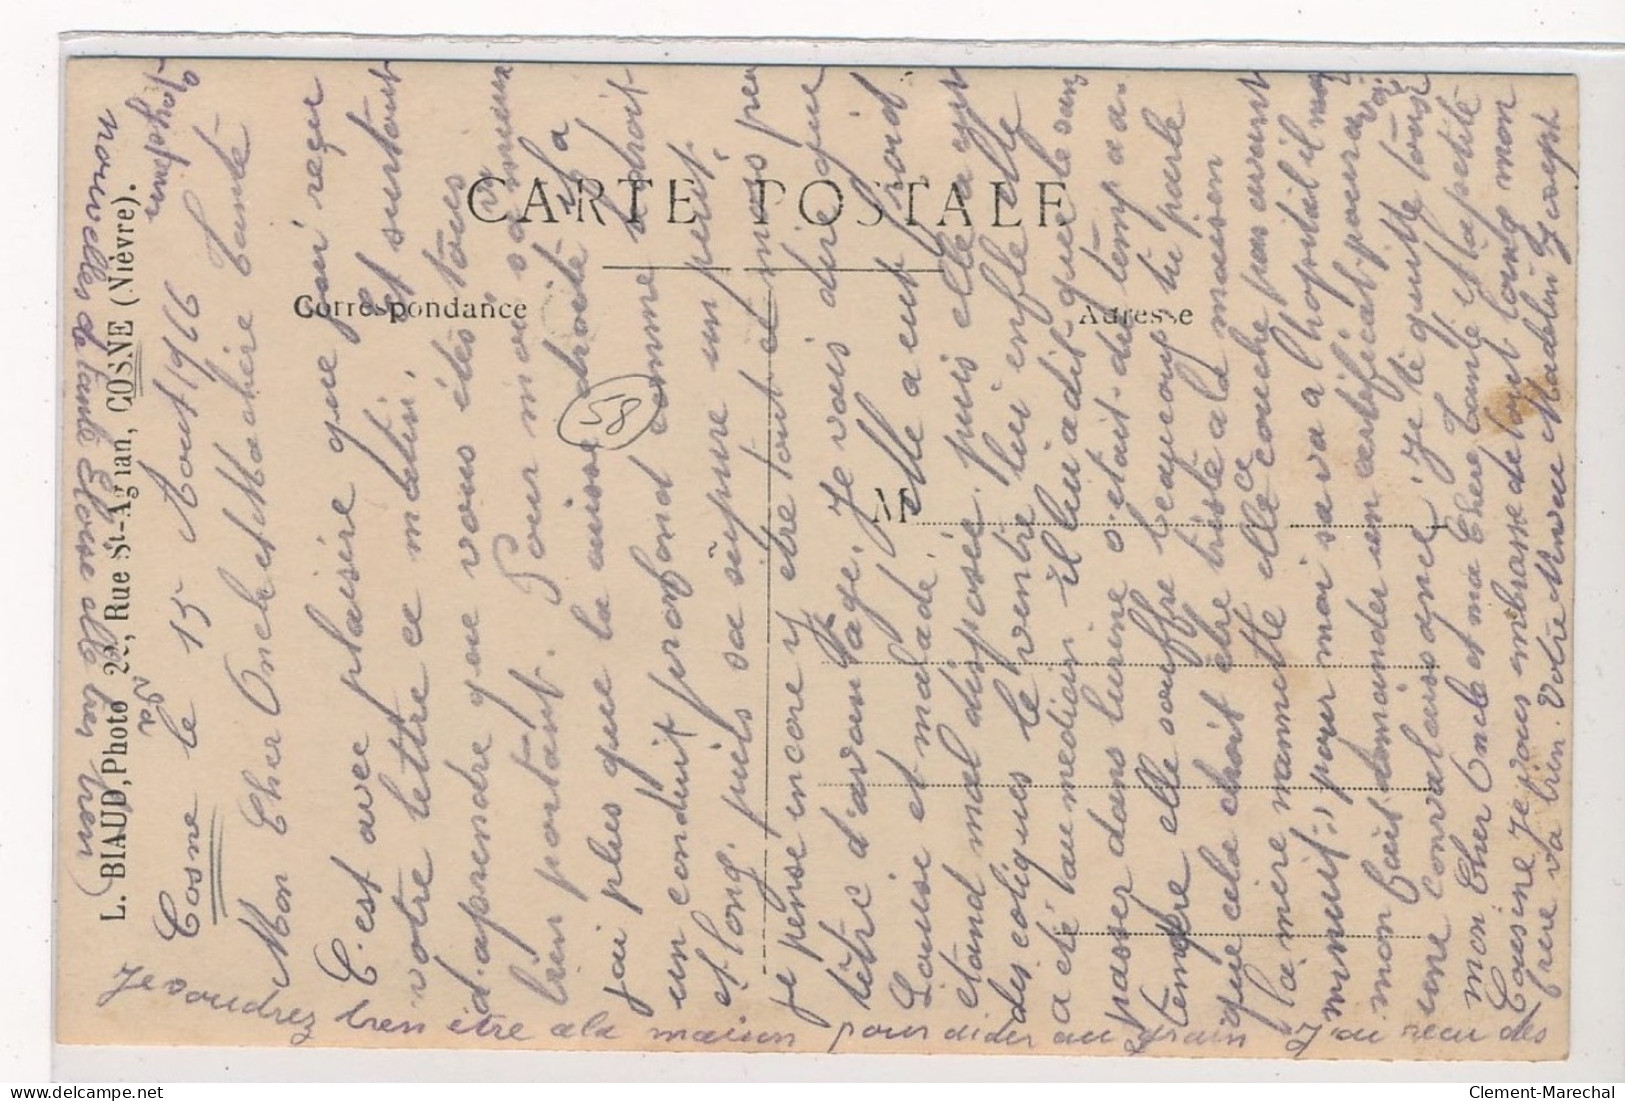 CARTE POSTALE
Correspondance
Adresse
M
58
L. BIAUD, Photo 22, Rue St-Agnan, COSNE (Nièvre).
Cosne le 15 Aout 1916
Mon Cher Oncle et Ma chère tante
C'est avec plaisire que j'ai reçue
votre lettre ce matin. et surtout
d'apprendre que vous êtes tous
bien portant. Pour moi sa va mieux
jai plus que la cuisse droite il a
un conduit profond comme
et long. puis sa sepure un peut.
je pense encore y être tout et mois
être d'avantage. Je vais dire que
Louise et malade. elle a eut froid
etand mal disposée. puis elle a eut
des coliques le ventre lui enfle elle
a été au medicin il lui a dit que le sang
passer dans lurine s'était du temp a
tempre elle souffre beaucoup tu parle
que cela choit être triste a la maison
la mère nannette elle ce couche pas avant
minuit; pour moi sa va a l'hopital il
mon fait demander un certificat pour avoir
une convalaissance. Je te quitte tous
mon Cher Oncle et ma Chere tante et la petite
Cousine je vous embrasse de tout loing mon
frère va bien. Votre Neveu Madelin Joseph
Je voudrez bien être a la maison pour aider au grain J'ai recu des
nouvelles de tante Eloise elle très bien